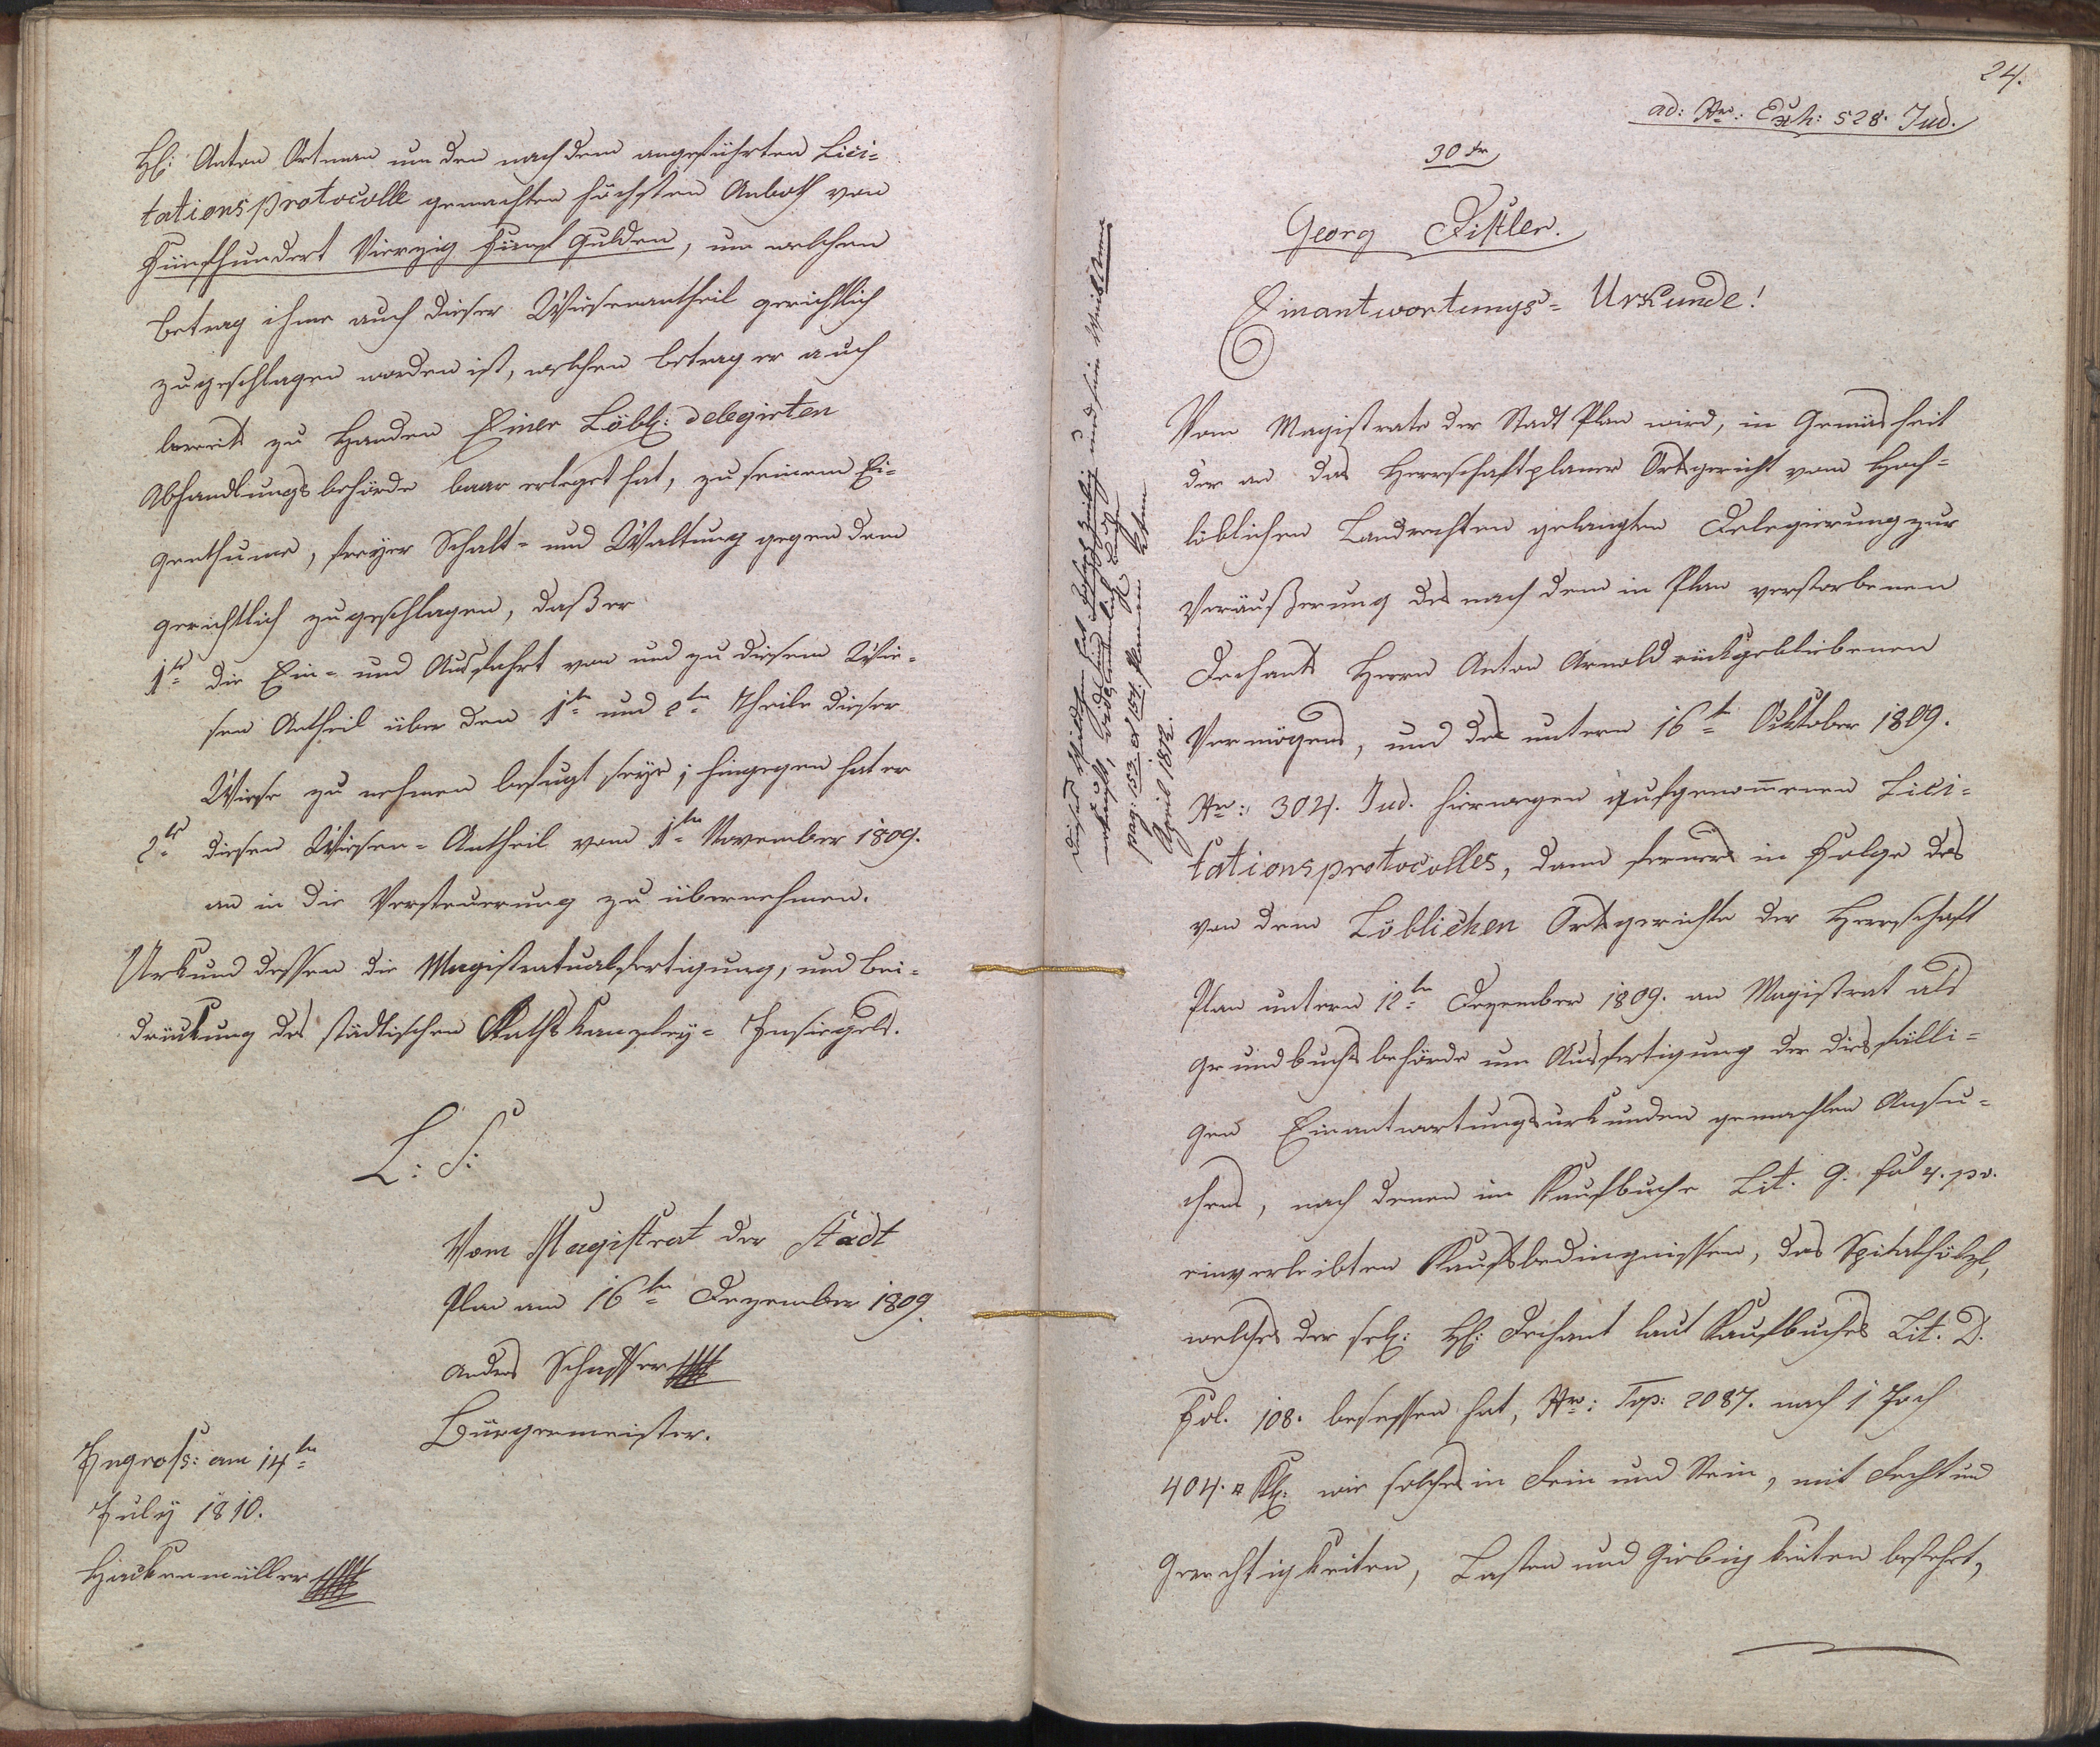 H: Anton Ortman um den nach dem angeführten Lici=
tationsprotocolle gemachten höchsten Anboth von
Fünfhundert Vierzig Fünf Gulden, um welchen
Betrag ihme auch dieser Wiesenantheil gerichtlich
zugeschlagen worden ist, welchen Betrag er auch
bereits zu Handen Einer Löbl: delegirten
Abhandlungsbehörde baar erleget hat, zu seinem Ei=
genthume, freyer Schalt= und Waltung gegen dem
gerichtlich zugeschlagen, daß er
1tr die Ein= und Ausfahrt von und zu diesem Wie=
sen Antheil über den 1tn und 2tn Theile dieser
Wiese zu nehmen befugt seye; hingegen hat er
2tr diesen Wiesen=Antheil vom 1tn November 1809.
an in die Versteuerung zu übernehmen.
Urkund dessen die Magistratualfertigung, und Bei=
drückung des städtischen Rathskanzley= Insiegels.
L: S:
Vom Magistrat der Stadt
Plan am 16tn Dezember 1809.
Bürgermeister.
Ingross: am 14tn
July 1810.
Hackenmüller
24.
ad: Nr: Exh: 528. Jud.
30 kr
Georg Fistler.
Einantwortungs= Urkunde!
pag: 153. & 154.
April 1812.
Vom Magistrate der Stadt Plan wird, in Gemäsheit
der an das Herrschaftplaner Ortsgericht vom Hoch=
löblichen Landrechten gelangten Delegierung zur
Veräußerung des nach dem in Plan verstorbenen
Dechants Herrn Anton Arnold rückgebliebenen
Vermögens, und des untern 16t Oktober 1809.
Nr: 304. Jud. hierwegen aufgenommenen Lici=
tationsprotocolles, dann ferners in Folge des
von dem Löblichen Ortsgerichte der Herrschaft
Plan untern 12tn Dezember 1809. an Magistrat als
Grundbuchsbehörde um Ausfertigung der diesfälli=
gen Einantwortungsurkunden gemachten Ansu=
chens, nach denen im Kaufbuche Lit. G. fol 4. pv.
einverleibten Kaufsbedingnissen, das Spitalhölzl,
welches der sel: H: Dechant laut Kaufbuches Lit. D.
Fol. 108. besessen hat, Nr: Top: 2087. nach 1 Joch
404. □ Kl: wie solches in Rein und Stein, mit Recht und
Gerechtigkeiten, Lasten und Giebigkeiten bestehet,